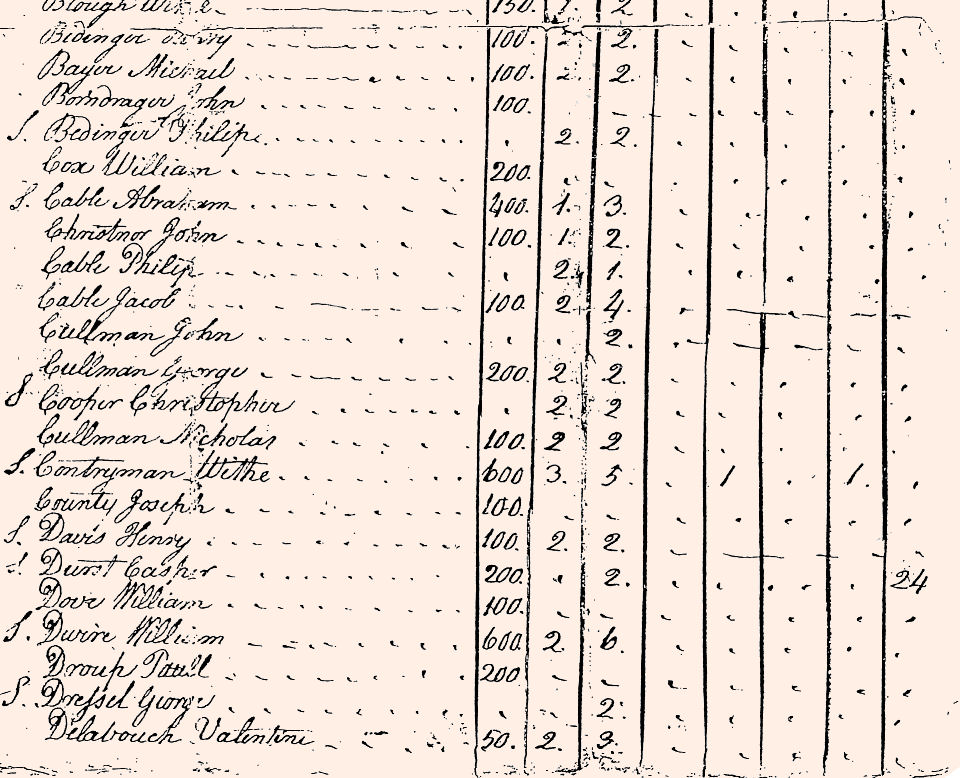 Blough 150. 1. 2
Bedinger 100. 2. 2.
Bayer Michael 100. 2. 2.
Borndrager John 100.
S. Bedinger Philip 2. 2.
Cox William 200.
S. Cable Abraham 400. 1. 3.
Christnor John 100. 1. 2.
Cable Philip 2. 1.
Cable Jacob 100. 2. 4.
Cullman John 2.
Cullman George 200. 2. 2.
S Cooper Christopher 2. 2
Cullman Nicholas 100. 2 2
S. Contryman Withe 600 3. 5. 1 1.
County Joseph 100.
S. Davis Henry 100. 2. 2.
S. Durst Casper 200. 2. 24
Dove William 100.
S. Dwire William 600. 2. 6.
Droup Paull 200
S. Dressel George 2.
Delabouch Valentine 50. 2. 3.